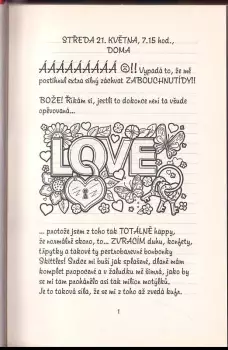 STŘEDA 21. KVĚTNA, 7.15 hod.,
DOMA
ÁÁÁÁÁÁÁÁÁ ☺!! Vypadá to, že mě
postihnul extra silný záchvat ZABOUCHNUTÍDY!!
BOŽE! Říkám si, jestli to dokonce není ta všude
opěvovaná...
LOVE
... protože jsem z toho tak TOTÁLNĚ happy,
že normálně skoro, to... ZVRACÍM duhu, konfety,
třpytky a takové ty pestrobarevné bonbony
Skittles! Srdce mi buší jak splašené, dlaně mám
komplet propocené a v žaludku mě šimrá, jako by
se mi tam prohánělo asi tak milion motýlků.
Je to taková síla, že se mi z toho až zvedá kufr.
1